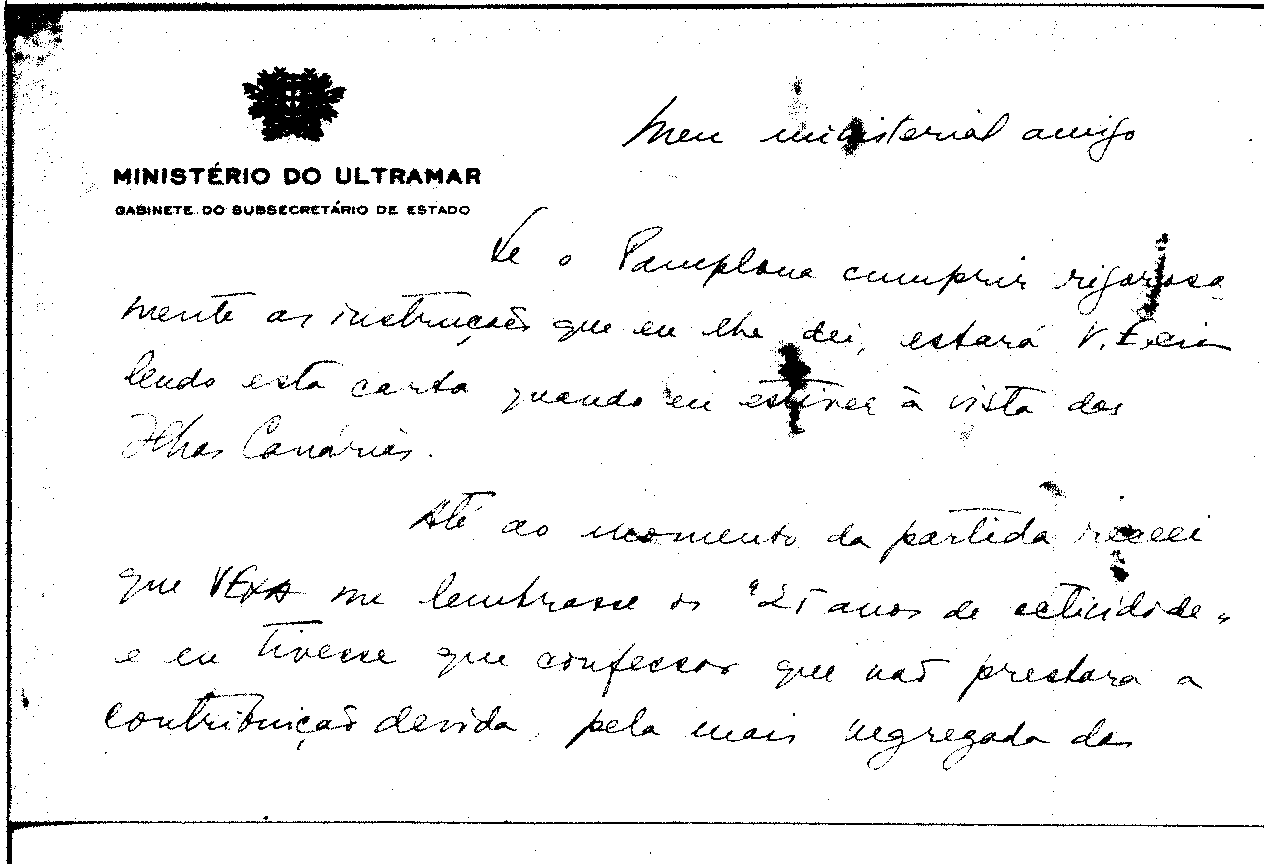 MINISTÉRIO DO ULTRAMAR
GABINETE DO SUBSECRETÁRIO DE ESTADO
Meu ministerial amigo
Se o Pamplona cumprir rigorosa
mente as instruções que eu lhe dei, estará V. Excia
lendo esta carta quando eu estiver à vista das
Ilhas Canárias.
Até ao momento da partida receei
que VExa me lembrasse os "25 anos de actividade"
e eu tivesse que confessar que não prestara a
contribuição devida, pela mais negregada das